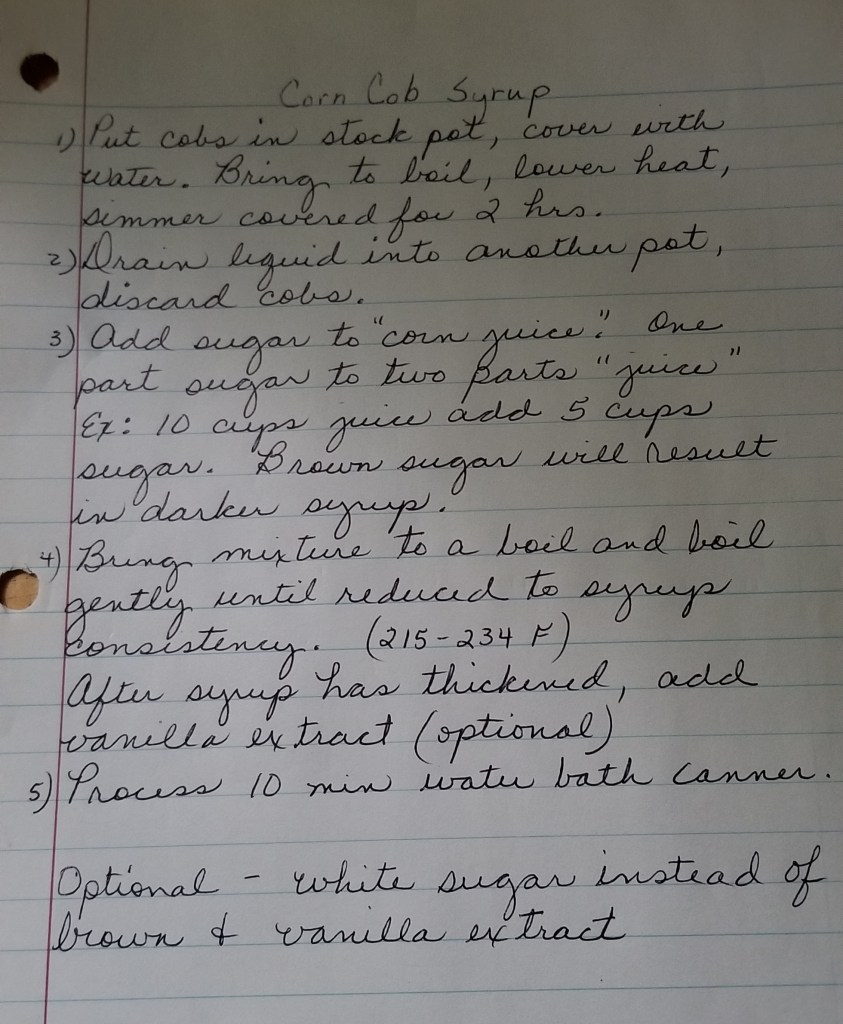 Corn Cob Syrup
1) Put cobs in stock pot, cover with
water. Bring to boil, lower heat,
simmer covered for 2 hrs.
2) Drain liquid into another pot,
discard cobs.
3) Add sugar to "corn juice". One
part sugar to two parts "juice"
Ex: 10 cups juice add 5 cups
sugar. Brown sugar will result
in darker syrup.
4) Bring mixture to a boil and boil
gently until reduced to syrup
consistency. (215-234 F)
After syrup has thickened, add
vanilla extract (optional)
5) Process 10 min water bath canner.
Optional - white sugar instead of
brown & vanilla extract